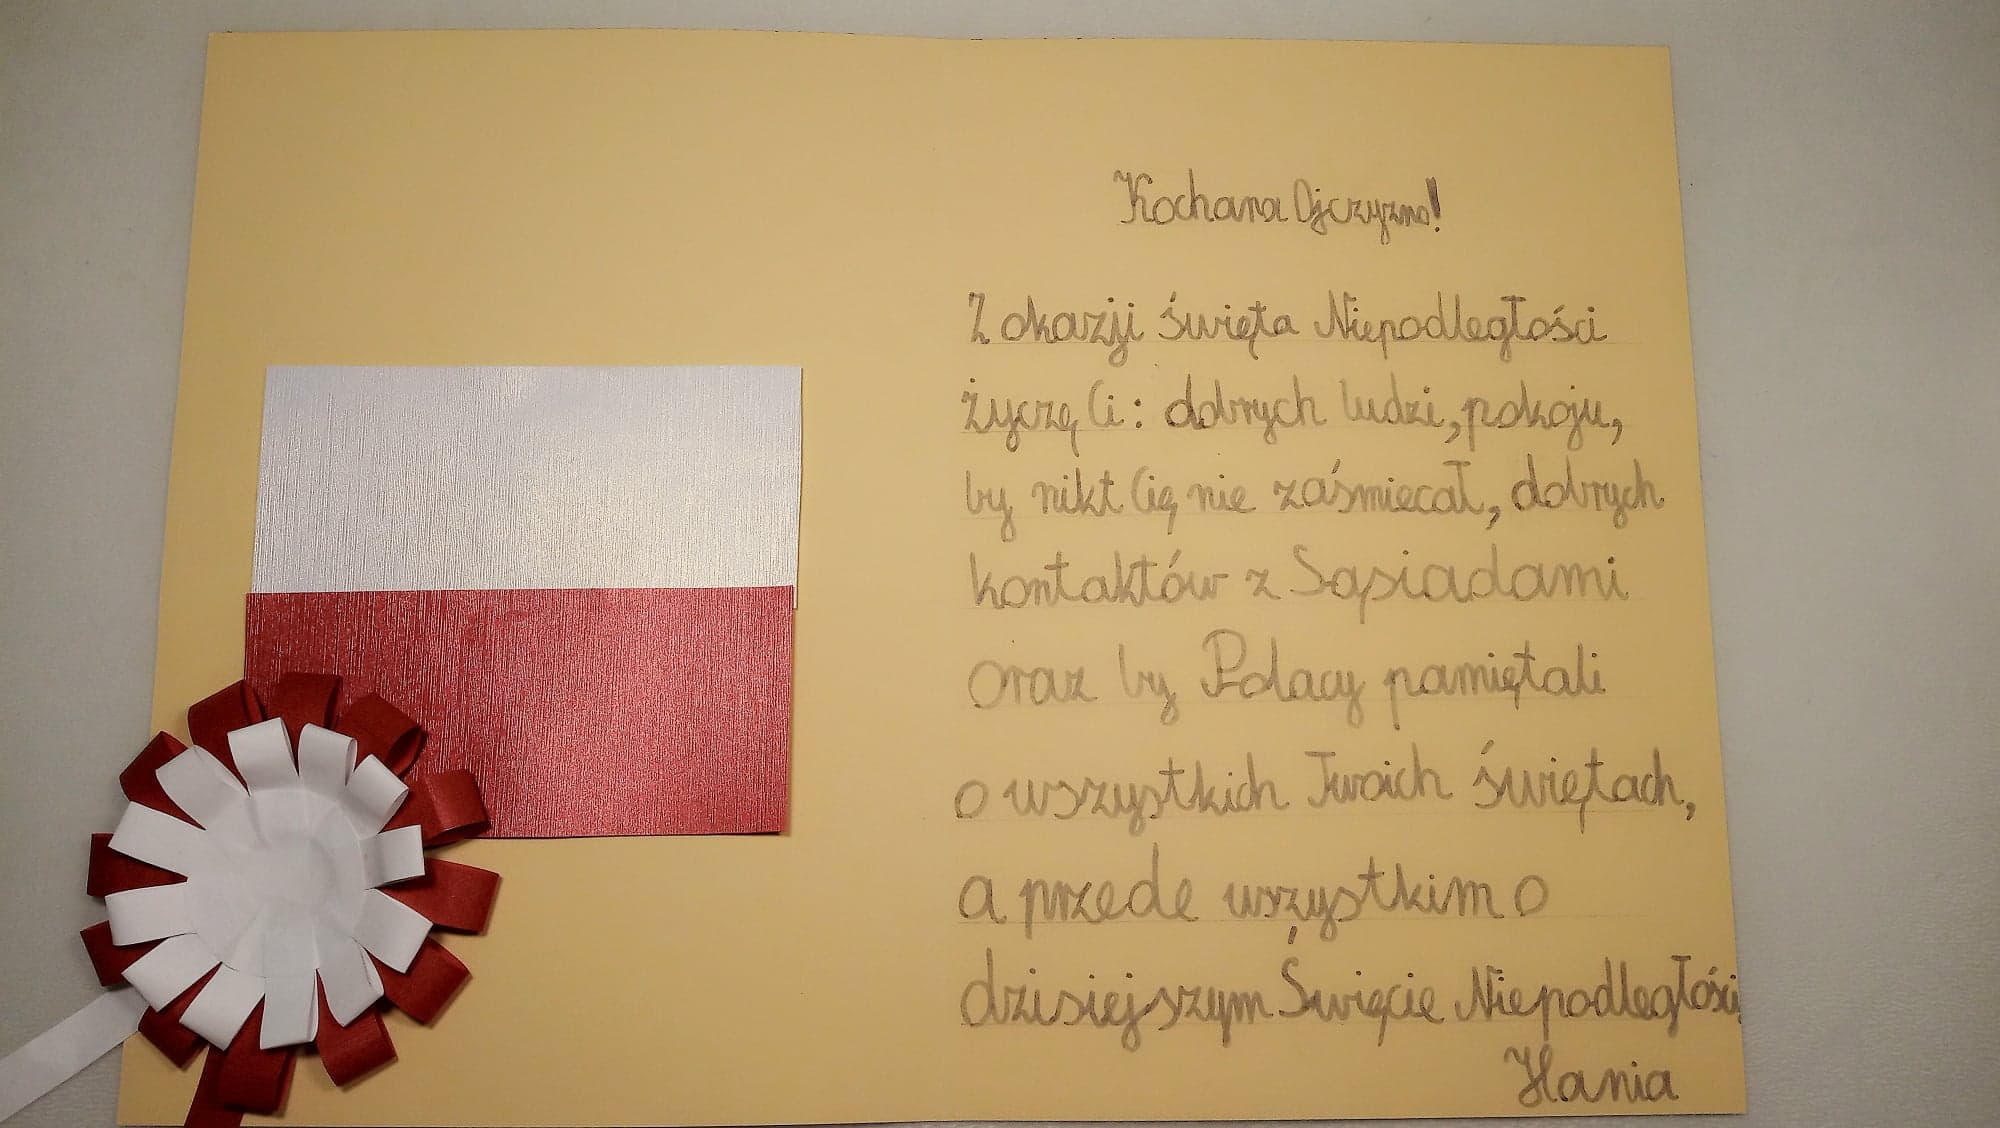 Kochana Ojczyzno!
Z okazji święta Niepodległości
życzę Ci: dobrych ludzi, pokoju,
by nikt Cię nie zaśmiecał, dobrych
kontaktów z Sąsiadami
oraz by Polacy pamiętali
o wszystkich Twoich świętach,
a przede wszystkim o
dzisiejszym Święcie Niepodległości
Hania